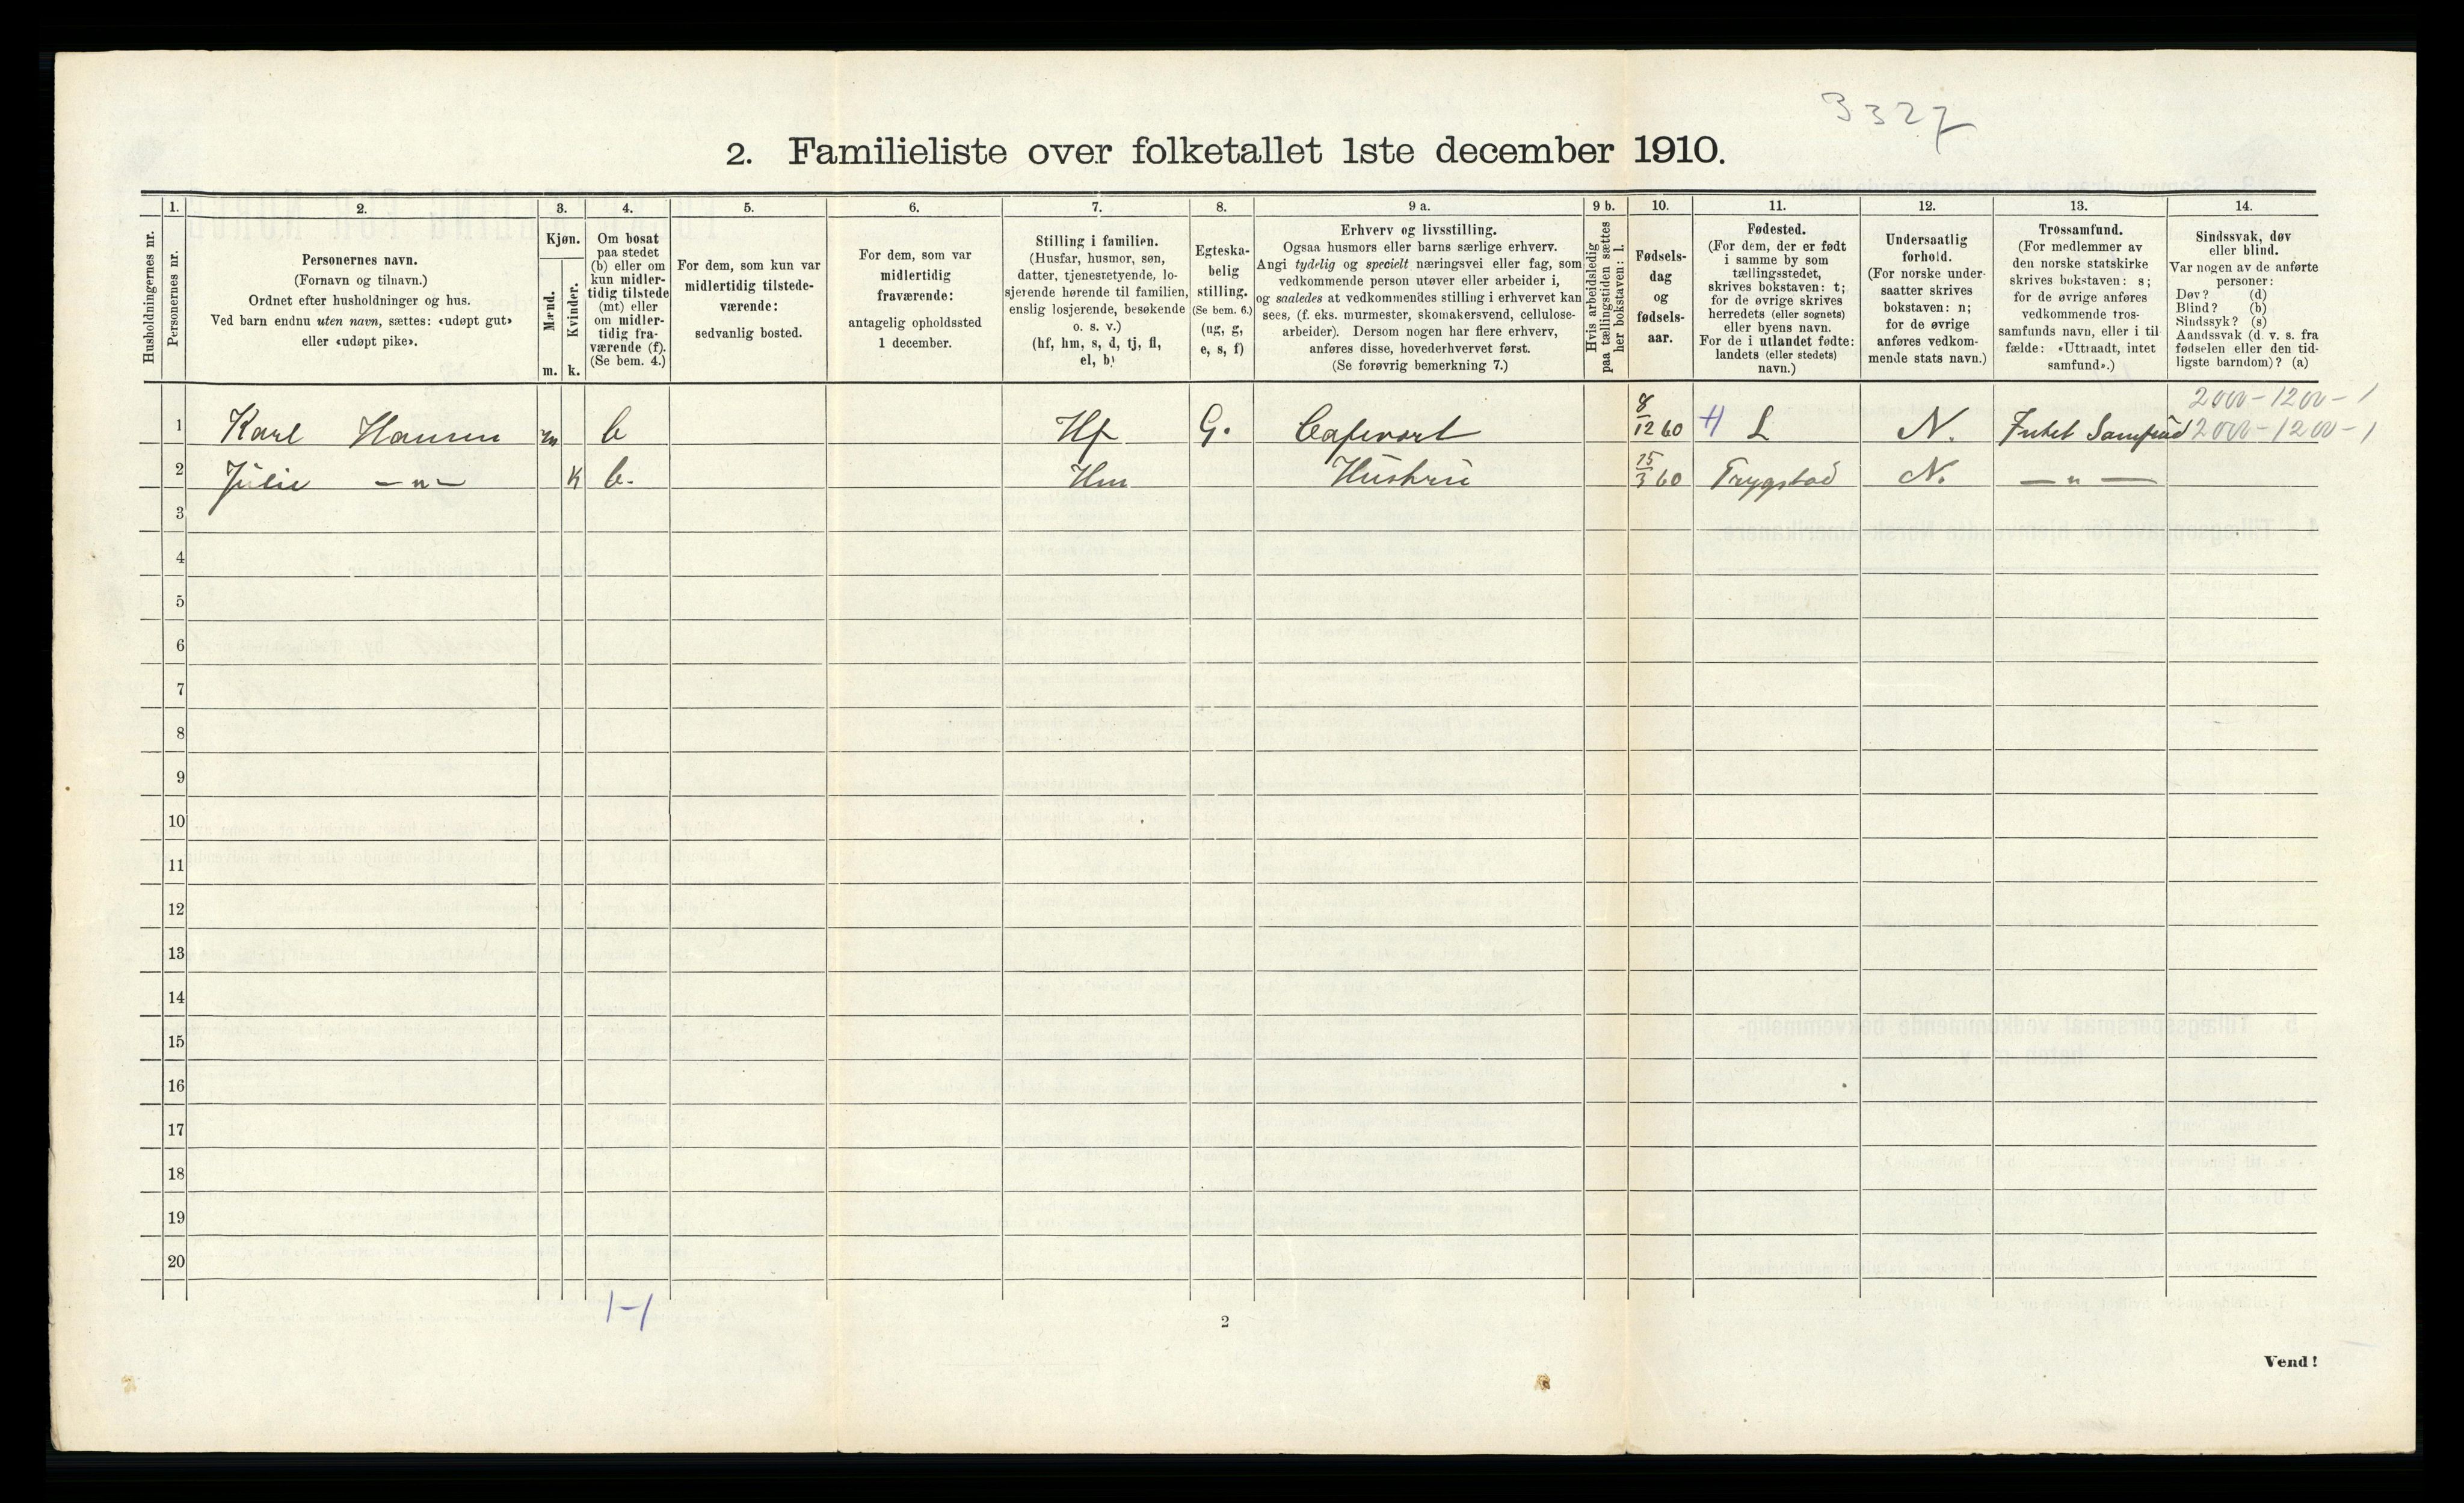 3327
2. Familieliste over folketallet 1ste december 1910.
1. 2. 3. 4. 5. 6. 7. 8. 9 a. 9 b. 10. 11. 12. 13. 14.
Husholdningernes nr.
Personernes nr.
Personernes navn.
(Fornavn og tilnavn.)
Ordnet efter husholdninger og hus.
Ved barn endnu uten navn, sættes: «udøpt gut»
eller «udøpt pike».
Kjøn.
Mænd.
m.
Kvinder.
k.
Om bosat
paa stedet
(b) eller om
kun midler-
tidig tilstede
(mt) eller
om midler-
tidig fra-
værende (f).
(Se bem. 4.)
For dem, som kun var
midlertidig tilstede-
værende:
sedvanlig bosted.
For dem, som var
midlertidig
fraværende:
antagelig opholdssted
1 december.
Stilling i familien.
(Husfar, husmor, søn,
datter, tjenestetyende, lo-
sjerende hørende til familien,
enslig losjerende, besøkende
o. s. v.)
(hf, hm, s, d, tj, fl,
el, b)
Egteska-
belig
stilling.
(Se bem. 6.)
(ug, g,
e, s, f)
Erhverv og livsstilling.
Ogsaa husmors eller barns særlige erhverv.
Angi tydelig og specielt næringsvei eller fag, som
vedkommende person utøver eller arbeider i,
og saaledes at vedkommendes stilling i erhvervet kan
sees, (f. eks. murmester, skomakersvend, cellulose-
arbeider). Dersom nogen har flere erhverv,
anføres disse, hovederhvervet først.
(Se forøvrig bemerkning 7.)
Hvis arbeidsledig
paa tællingstiden sættes
her bokstaven: l.
Fødsels-
dag
og
fødsels-
aar.
Fødested.
(For dem, der er født
i samme by som
tællingsstedet,
skrives bokstaven: t;
for de øvrige skrives
herredets (eller sognets)
eller byens navn.
For de i utlandet fødte:
landets (eller stedets)
navn.)
Undersaatlig
forhold.
(For norske under-
saatter skrives
bokstaven: n;
for de øvrige
anføres vedkom-
mende stats navn.)
Trossamfund.
(For medlemmer av
den norske statskirke
skrives bokstaven: s;
for de øvrige anføres
vedkommende tros-
samfunds navn, eller i til-
fælde: «Uttraadt, intet
samfund».)
Sindssvak, døv
eller blind.
Var nogen av de anførte
personer:
Døv? (d)
Blind? (b)
Sindssyk? (s)
Aandssvak (d. v. s. fra
fødselen eller den tid-
ligste barndom)? (a)
2000-1200-1
1 Karl Hansen m b Hf G. Cafevert 8/12 60 t N. Intet Samfund 2000-1200-1
2 Julie —"— K b. Hm Hustru 15/3 60 Trygstad N. —"—
3
4
5
6
7
8
9
10
11
12
13
14
15
16
17
18
19
20
1-1
2
Vend!